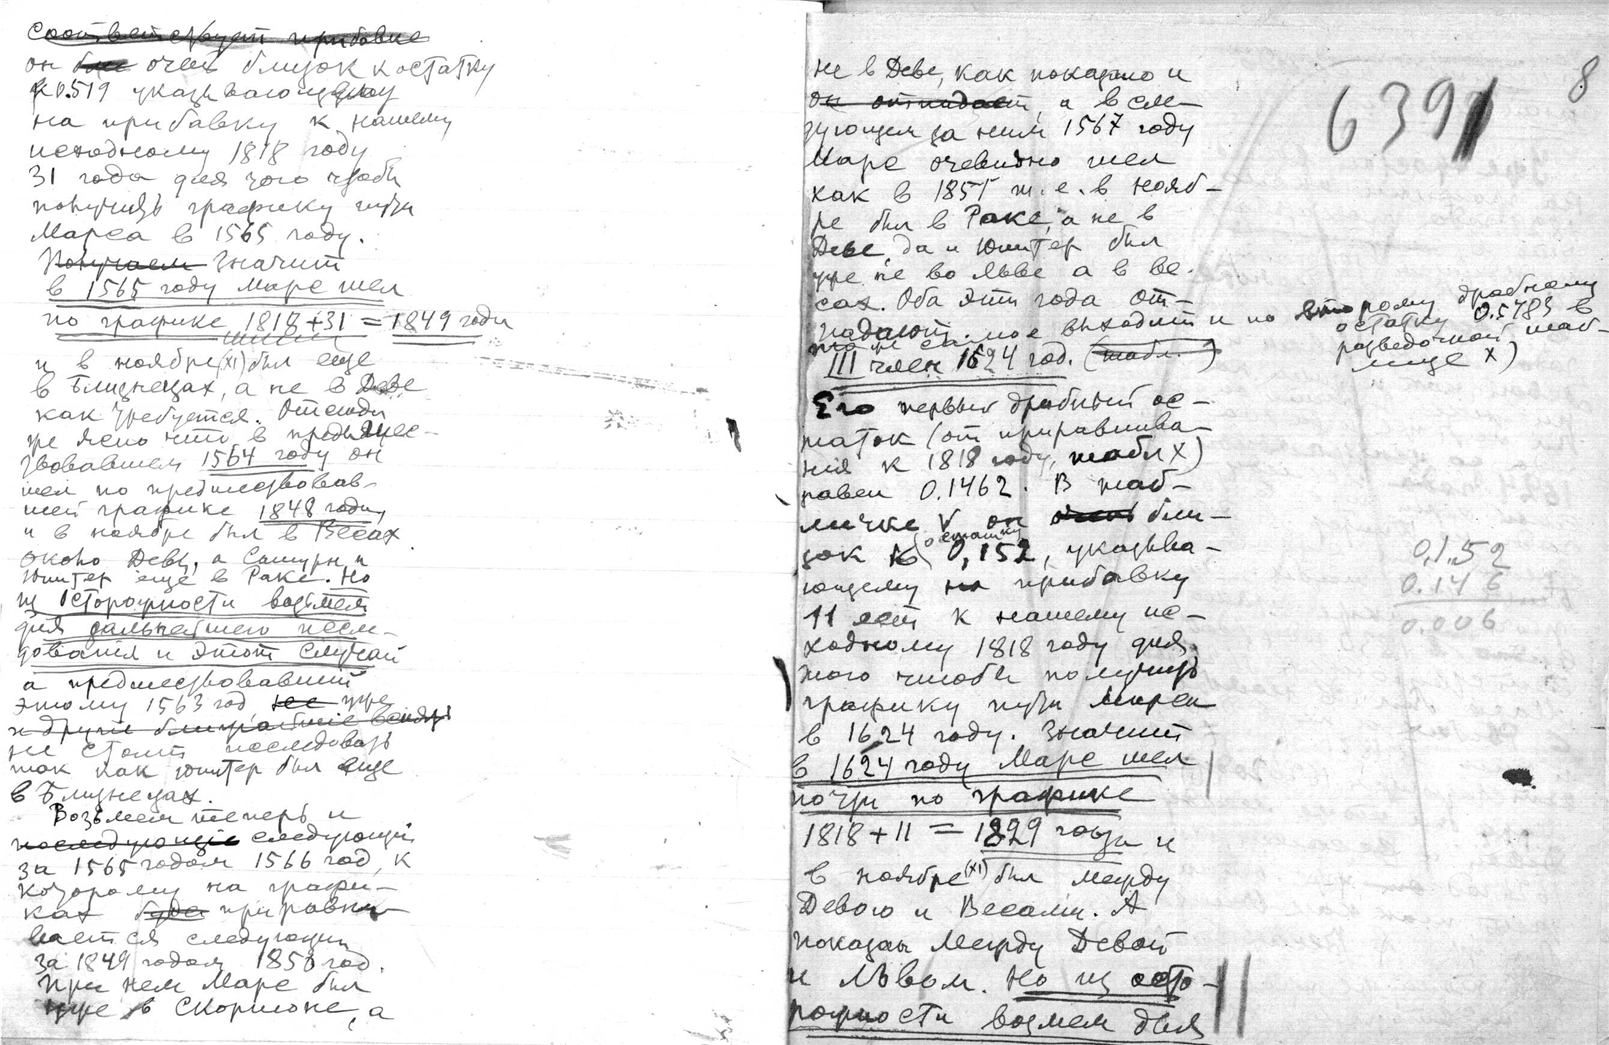 Соответствует прибавке
он был очень близок к остатку
к 0.519 указывающему
на прибавку к нашему
исходному 1818 году
31 года для того чтобы
получить графику пути
Марса в 1565 году.
Получаем Значит
в 1565 году Марс шел
по графике 1818+31=1849 года
и в ноябре (XI) был еще
в Близнецах, а не в Деве
как требуется. Отсюда
же ясно что в предшест-
вовавшем 1564 году он
шел по предшествовав-
шей графике 1848 года,
и в ноябре был в Весах
около Девы, а Сатурн и
Юпитер еще в Раке. Но
из осторожности возьмем
для дальнейшего иссле-
дования и этот случай
а предшествовавший
этому 1563 год уже
и другие ближайшие
не стоит исследовать
так как Юпитер был еще
в Близнецах.
Возьмем теперь и
последующий следующий
за 1565 годом 1566 год, к
которому на графи-
ках буде приравни-
вается следующий
за 1849 годом 1850 год.
При нем Марс был
уже в Скорпионе, а
8
6391
не в Деве, как показано и
он отпадает, а в сле-
дующем за ним 1567 году
Марс очевидно шел
как в 1851 т.е. в нояб-
ре был в Раке, а не в
Деве, да и Юпитер был
уже не во Льве а в Ве-
сах. Оба эти года от-
падают. То же самое выходит и по второму дробному
остатку 0.5783 в
разведочной таб-
лице X)
III член 1624 год. (табл. )
Его первый дробный ос-
таток (от приравнива-
ния к 1818 году, табл X)
равен 0.1462. В таб-
личке V он очень бли-
зок к остатку 0,152, указыва-
ющему на прибавку
11 лет к нашему ис-
ходному 1818 году для
того чтобы получить
графику пути Марса
в 1624 году. Значит
в 1624 году Марс шел
почти по графике
1818+11=1829 года и
в ноябре (XI) был между
Девою и Весами. А
показан между Девой
и Львом. Но из осто-
рожности возмем для
0,1.52
0.146
0.006